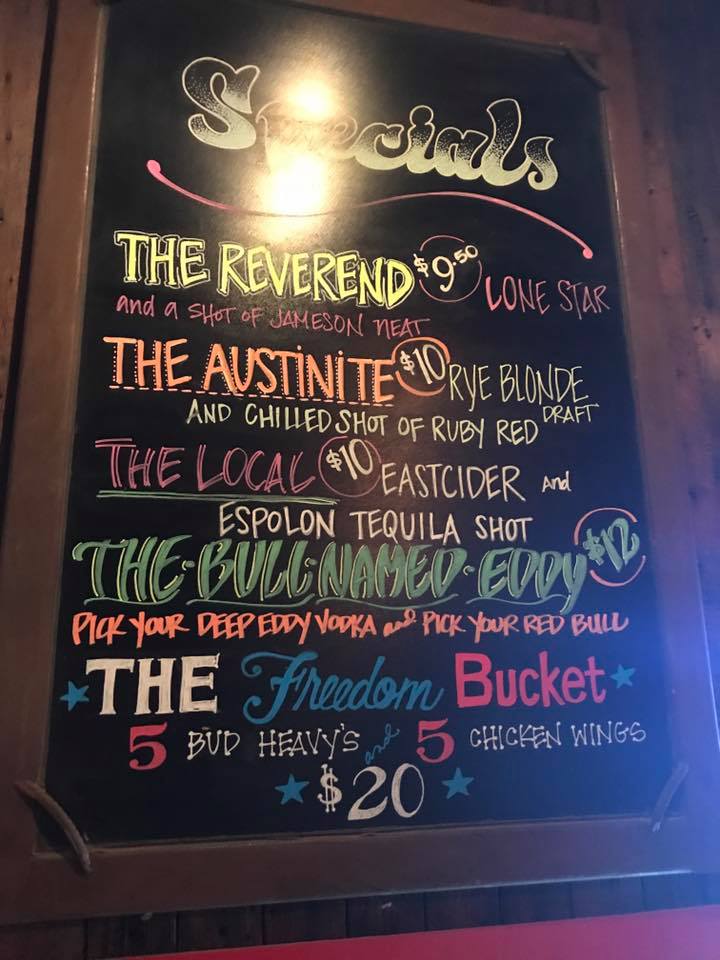 Specials
THE REVEREND $9.50 LONE STAR
and a SHOT OF JAMESON NEAT
THE AUSTINITE $10 RYE BLONDE DRAFT
AND CHILLED SHOT OF RUBY RED
THE LOCAL $10 EASTCIDER And
ESPOLON TEQUILA SHOT
THE·BULL·NAMED·EDDY $12
PICK YOUR DEEP EDDY VODKA and PICK YOUR RED BULL
THE Freedom Bucket
5 BUD HEAVY'S and 5 CHICKEN WINGS
$20